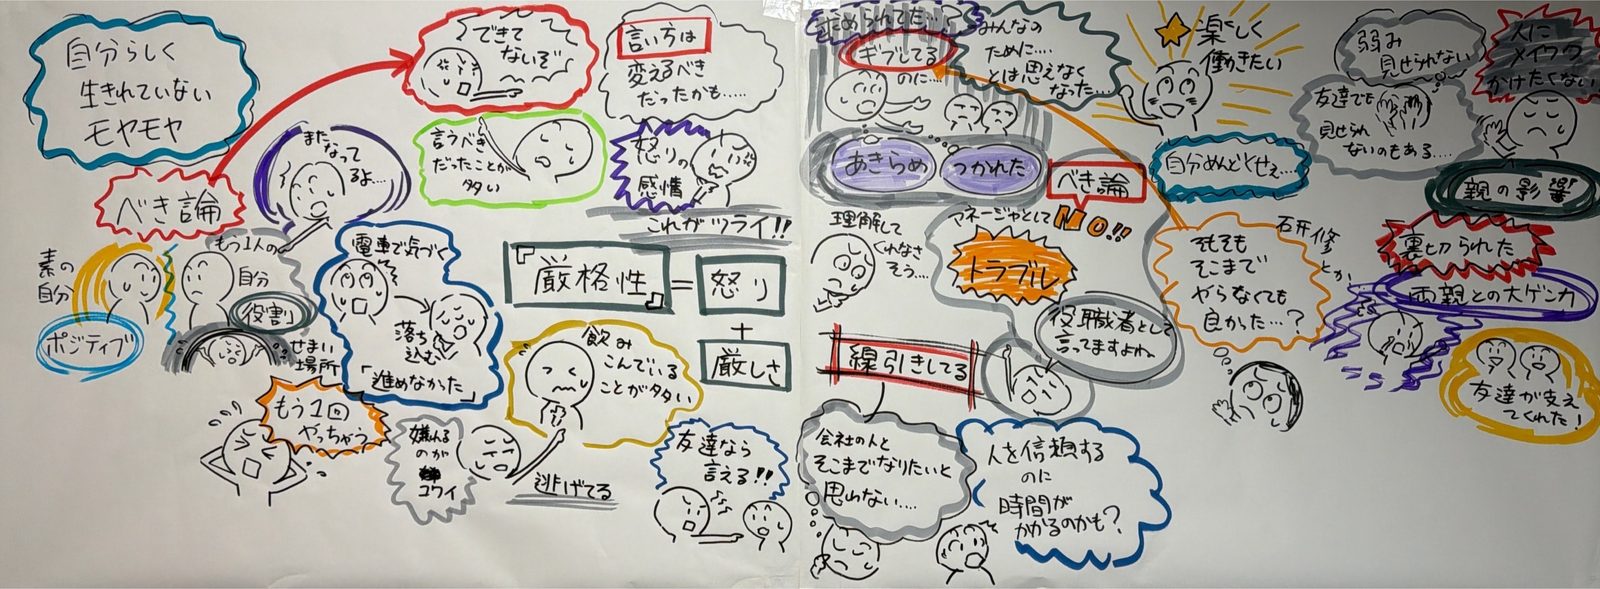 自分らしく
生きれていない
モヤモヤ
べき論
できて
ないぞ
言い方は
変えるべき
だったかも……
またなって
るよ…
言うべき
だったことが
多い
怒りの
感情
これがツライ!!
素の
自分
ポジティブ
もう1人の
自分
役割
せまい
場所
電車で気づく
落ち
込む
「進めなかった」
もう1回
やっちゃう
『厳格性』
=
怒り
+
厳しさ
飲み
こんでいる
ことが多い
嫌われる
のが
コワイ
逃げてる
友達なら
言える!!
求められてた…
ギブしてる
のに…
みんなの
ために….
とは思えなく
なった…
あきらめ
つかれた
べき論
楽しく
働きたい
自分めんどくせぇ…
弱み
見せられない
人に
メイワク
かけたくない
友達でも
見せられ
ないのもある….
親の影響
理解して
くれなさ
そう….
マネージャとして
NO!!
トラブル
役職者として
言ってますよね。
線引きしてる
会社の人と
そこまでなりたいと
思わない….
人を信頼する
のに
時間が
かかるのかも?
そもそも
そこまで
やらなくても
良かった…?
石井修
とか、
裏切られた
両親との大ゲンカ
友達が支え
てくれた!